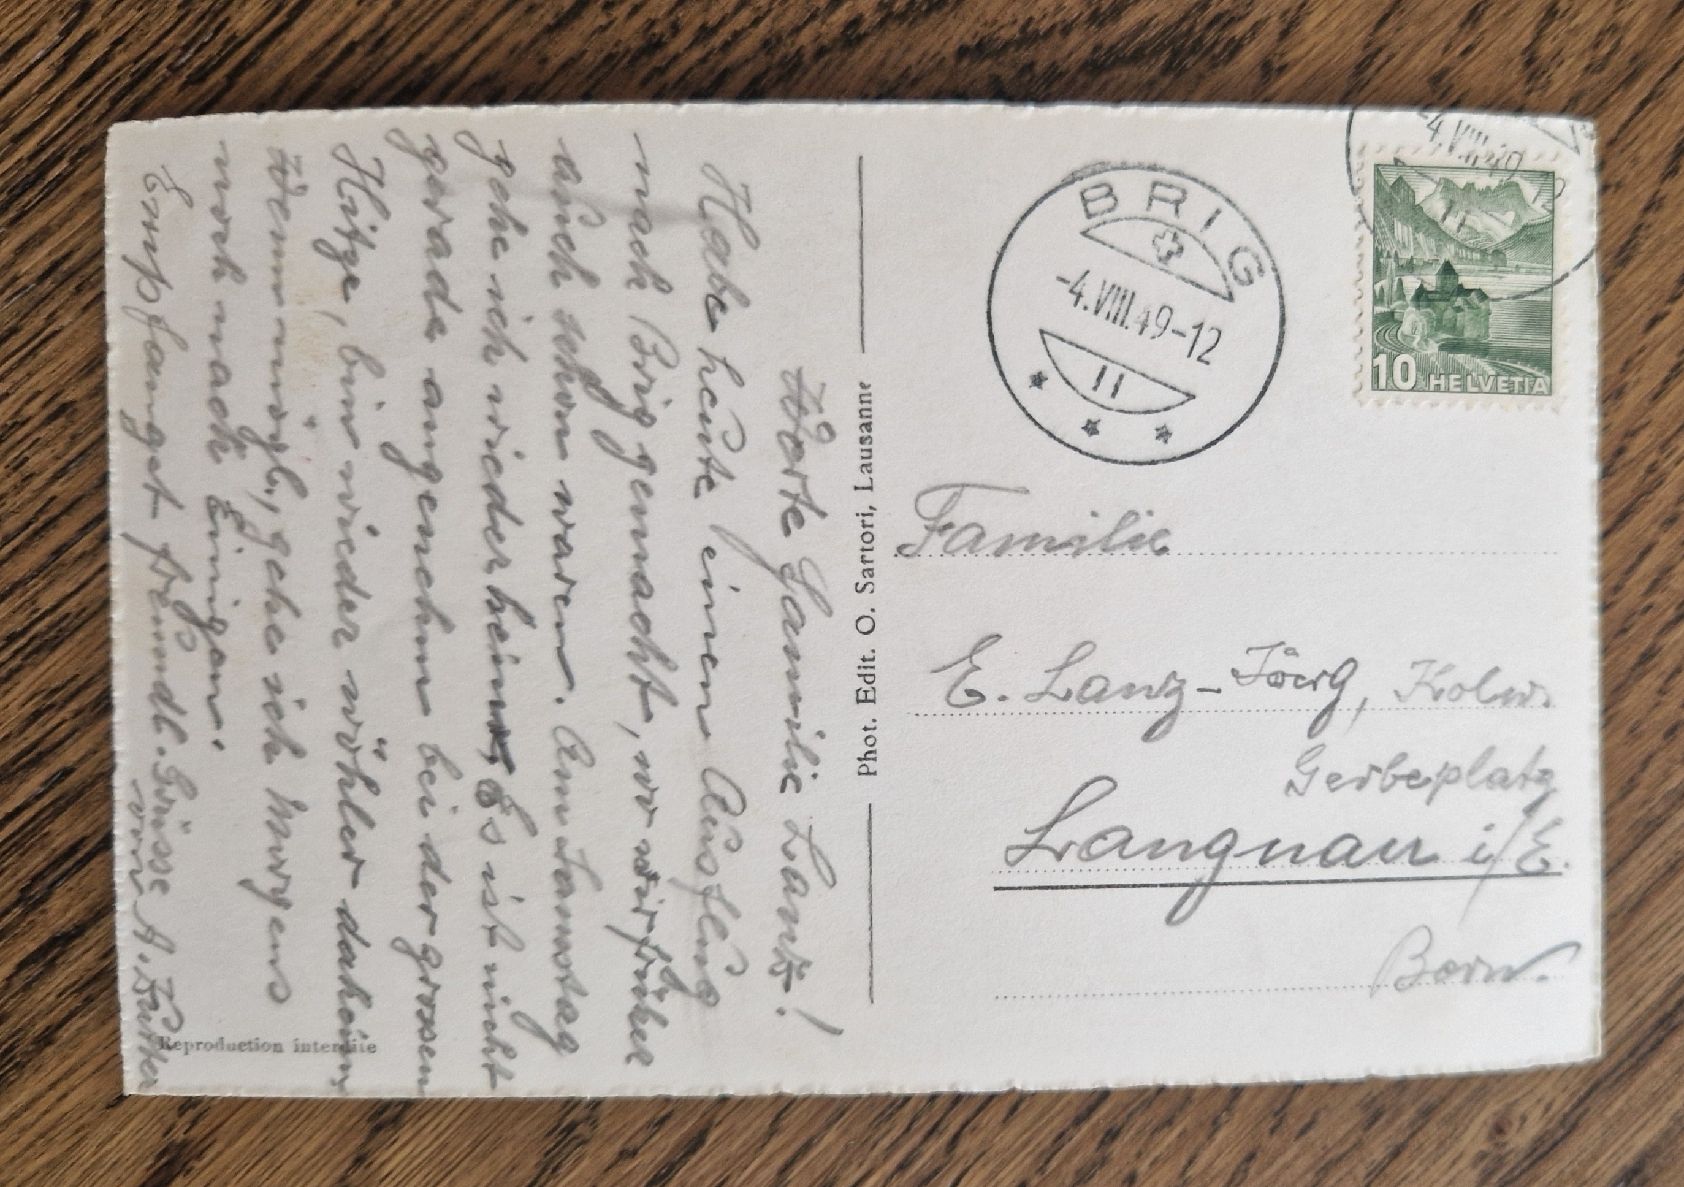 Werte Familie Lanz!
Habe heute einen Ausflug
nach Brig gemacht, wo wir früher
auch schon waren. Am Samstag
gehe ich wieder heim. Es ist nicht
gerade angenehm bei der grossen
Hitze, bin wieder wöhler daheim,
Wenn mögl., gehe ich Morgens
noch nach Einigen.
Empfanget freundl. Grüsse
von
Phot. Edit. O. Sartori, Lausanne
Reproduction interdite
BRIG
-4.VIII.49-12
11
-4.VIII.49-12
11
10 HELVETIA
Familie
E. Lanz-Jörg, Kolw.
Gerbeplatz
Langnau i/E.
Bern.